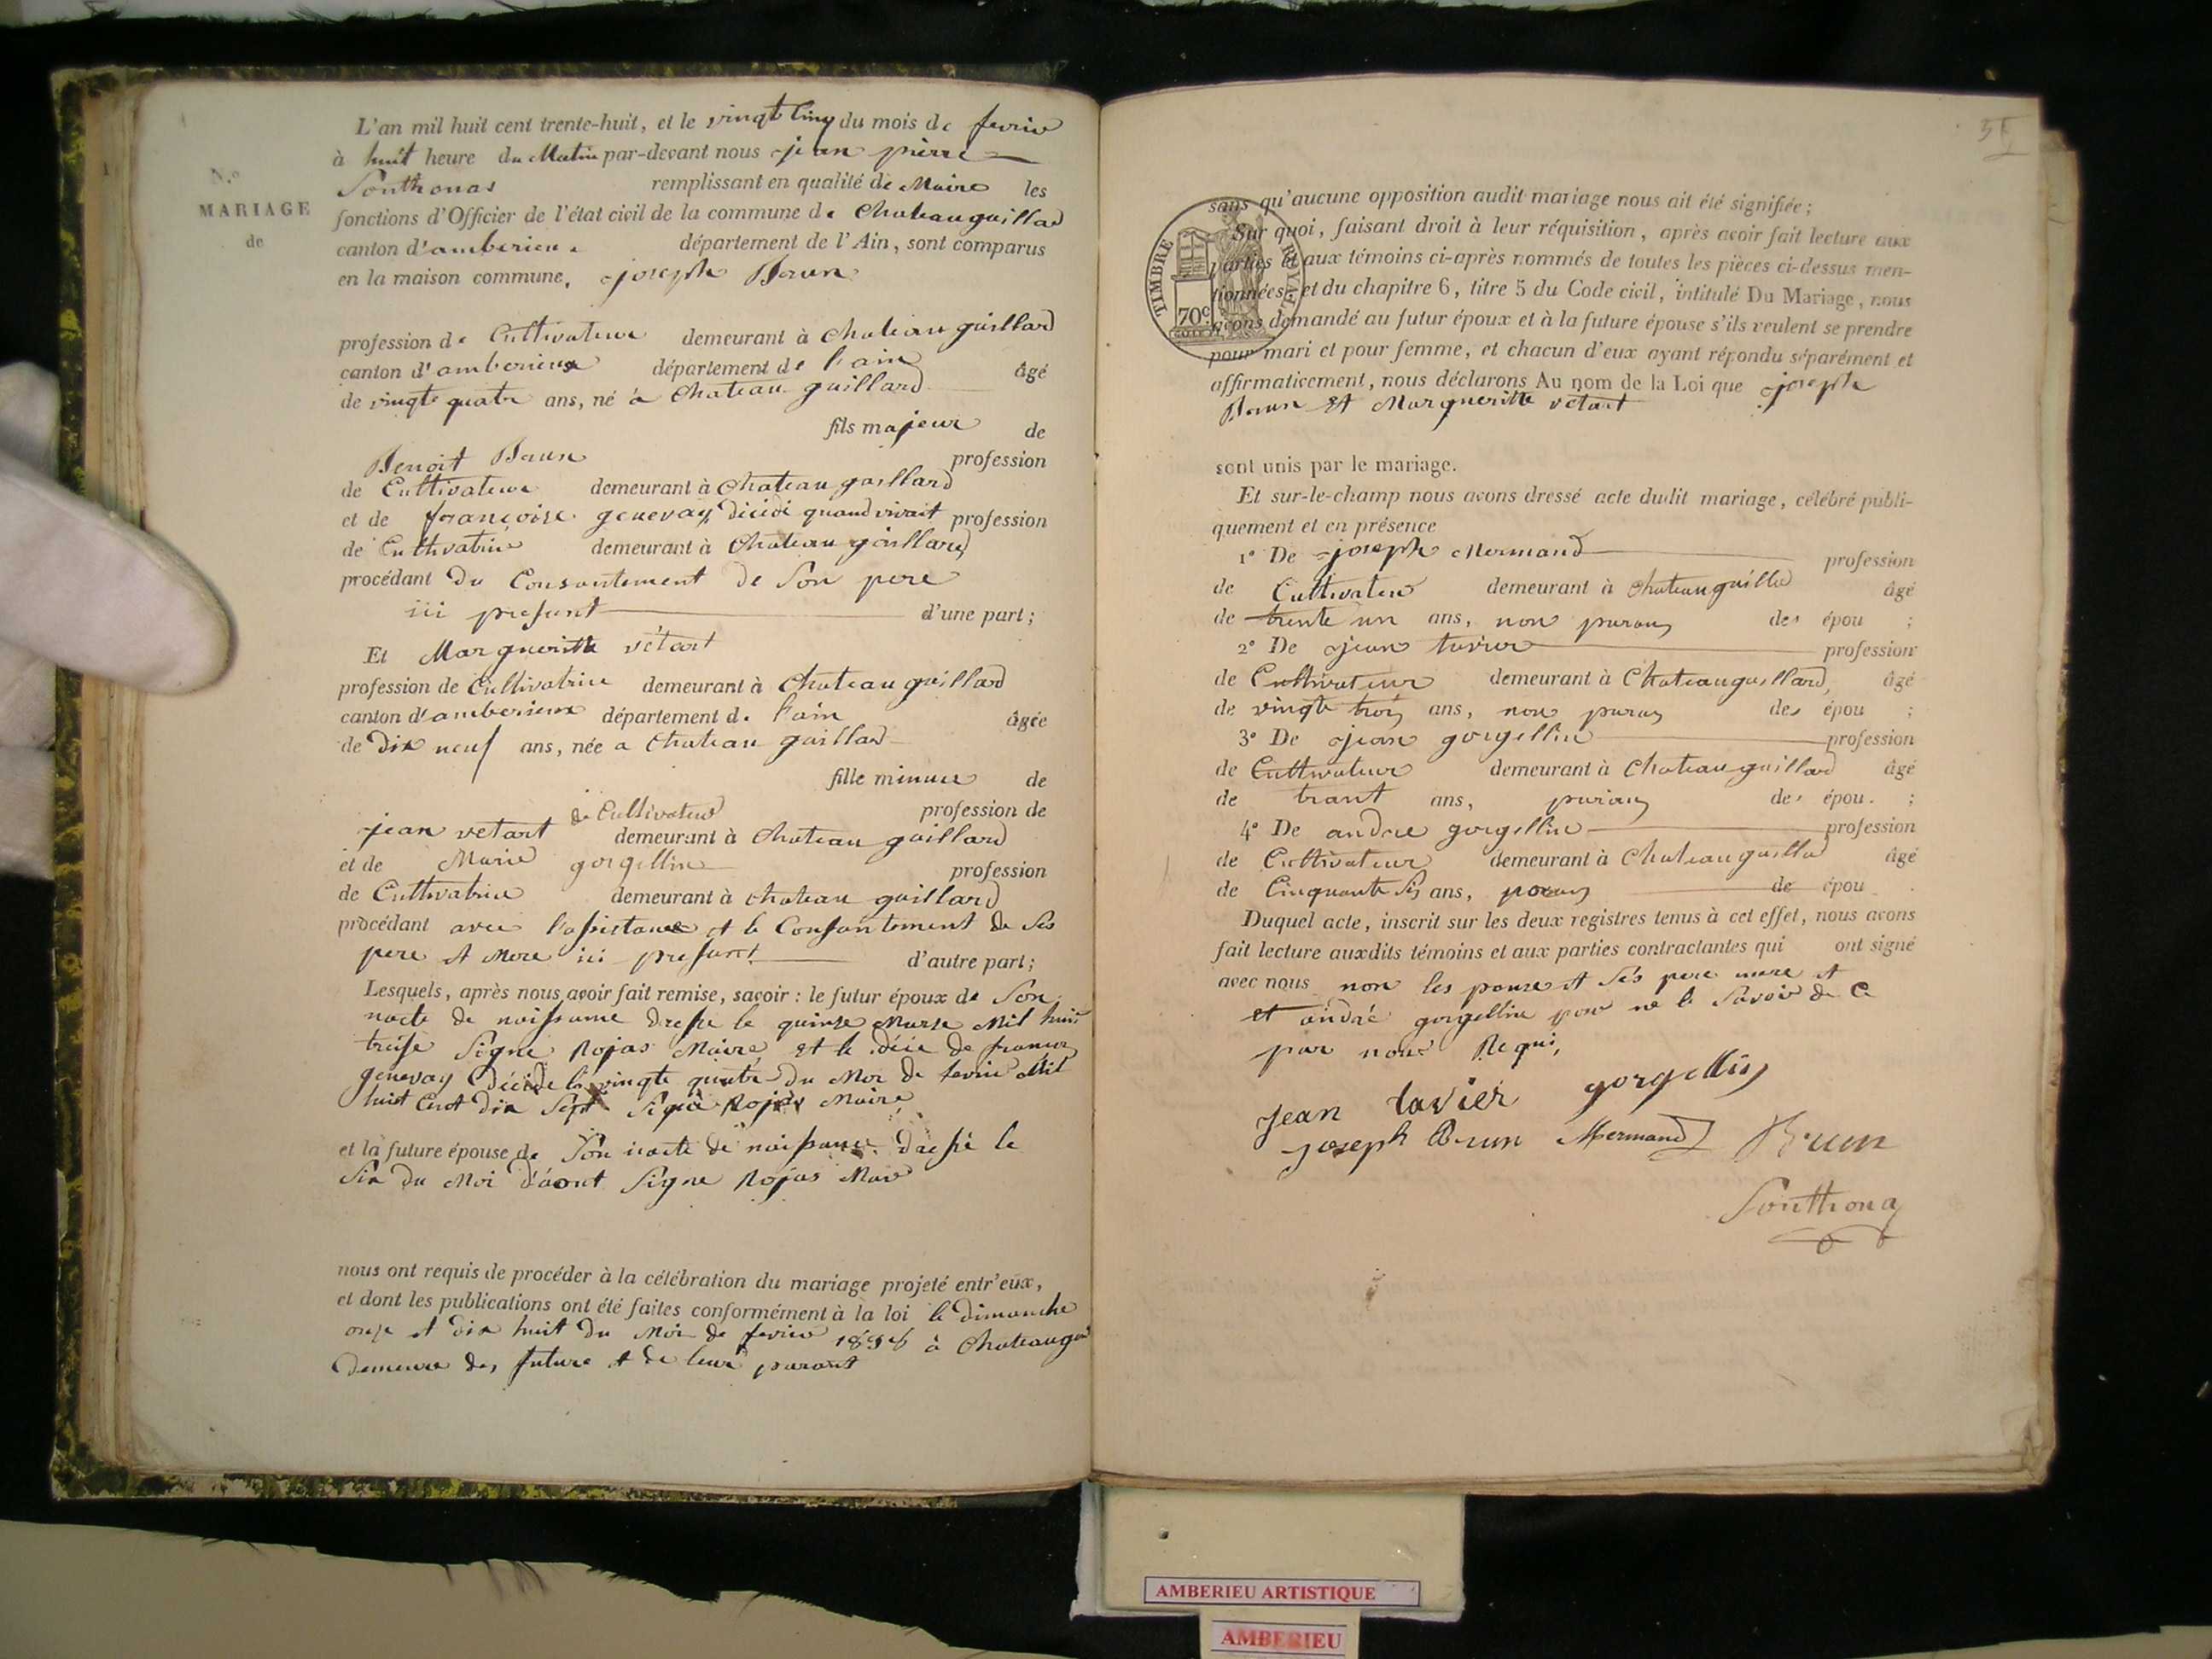 L'an mil huit cent trente-huit, et le vingt cinq du mois de fevrie
à huit heure du Matin par-devant nous jean pierre
Southonas remplissant en qualité de Maire les
N.o
MARIAGE
de
fonctions d'Officier de l'état civil de la commune de Chateau gaillard
canton d'amberieu département de l'Ain, sont comparus
en la maison commune, joseph Brun
profession de Cultivateur demeurant à chateau gaillard
canton d'amberieux département de l'ain âgé
de vingte quatre ans, né à Chateau gaillard
fils majeur de
Benoit Brun profession
de Cultivateur demeurant à Chateau gaillard
et de françoise genevay, dicidé quand vivait profession
de Cultivatrice demeurant à Chateau gaillard
procédant du Consantement de Son pere
ici presant d'une part;
Et Margueritte vétart
profession de Cultivatrice demeurant à Chateau gaillard
canton d'amberieux département de l'ain âgée
de dix neuf ans, née a Chateau gaillard
fille mineure de
jean vetart de Cultivateur profession de
demeurant à Chateau gaillard
et de Marie gorgellin profession
de Cultivatrice demeurant à chateau gaillard
procédant avec l'assistance et le Consantement de Ses
pere et Mere ici presant d'autre part;
Lesquels, après nous avoir fait remise, savoir: le futur époux de Son
nacte de naissance dressé le quinze Marse Mil huit
treise Signe Rojas Maire et le décé de
genevay décidé le vingte quatre du Moi de fevrie Mil
huit Cent dix Sept Signé Rojas Maire
et la future épouse de Son nacte de naissance dressé le
Six du Moi d'aout Signe Rojas Mare
nous ont requis de procéder à la célébration du mariage projeté entr'eux,
et dont les publications ont été faites conformément à la loi le dimanche
onze et dix huit du Moi de fevrie 1838 à Chateaugai
demeure des future et de leur parant
TIMBRE ROYAL
70c
sans qu'aucune opposition audit mariage nous ait été signifiée;
Sur quoi, faisant droit à leur réquisition, après avoir fait lecture aux
parties et aux témoins ci-après nommés de toutes les pièces ci-dessus men-
tionnées, et du chapitre 6, titre 5 du Code civil, intitulé Du Mariage, nous
avons demandé au futur époux et à la future épouse s'ils veulent se prendre
pour mari et pour femme, et chacun d'eux ayant répondu séparément et
affirmativement, nous déclarons Au nom de la Loi que joseph
Brun et Margueritte vétart
sont unis par le mariage.
Et sur-le-champ nous avons dressé acte dudit mariage, célébré publi-
quement et en présence
1° De joseph Mermand profession
de Cultivateur demeurant à Chateau gaillard âgé
de trente un ans, non parans des épou ;
2° De jean tavier profession
de Cultivateur demeurant à Chateau gaillard, âgé
de vingte trois ans, non parans des épou ;
3° De jean gorgellin profession
de Cultivateur demeurant à Chateau gaillard âgé
de trant ans, parans des épou ;
4° De andre gorgellin profession
de Cultivateur demeurant à Chateau gaillard âgé
de Cinquante Six ans, parans de épou
Duquel acte, inscrit sur les deux registres tenus à cet effet, nous avons
fait lecture auxdits témoins et aux parties contractantes qui ont signé
avec nous non les pouse et Ses pere mere et
et andré gorgellin pour ne le Savoir de Ce
par nous Requi,
Jean tavier gorgellin
joseph Brun Mermand Brun
Southonas
AMBERIEU ARTISTIQUE
AMBERIEU